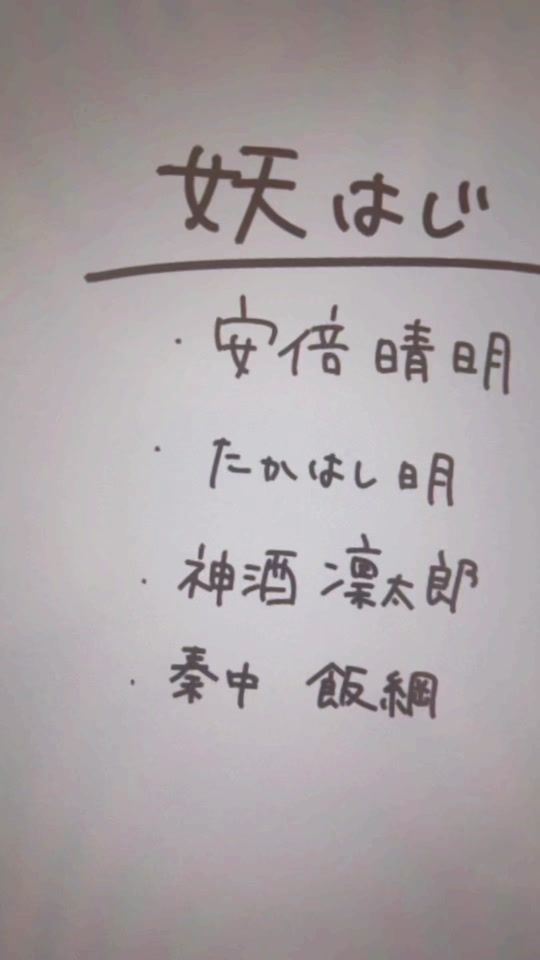 妖はじ
・安倍晴明
・たかはし明
・神酒 凛太郎
・秦中 飯綱